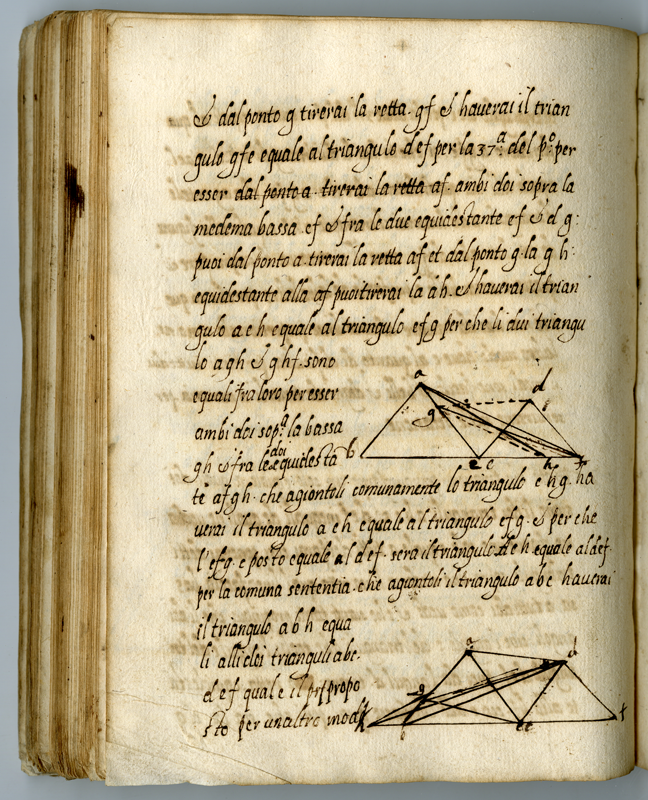 & dal ponto g tirerai la retta. gf & haverai il trian
gulo gfe equale al triangulo def per la 37ª del pº: per
esser dal ponto a. tirerai la retta af. ambi doi sopra la
medema bassa ef & fra le due equidestante ef & d g:
puoi dal ponto a. tirerai la retta af et dal ponto g. la g h:
equidestante alla af puoi tirerai la ah. & haverai il trian
gulo a e h equale al triangulo efg per che li dui triangu
lo agh & ghf. sono
equali fra loro per esser
ambi doi sopª la bassa
gh & fra le doi equidesta
te af gh. che agiontoli comunamente lo triangulo e h g. ha
verai il triangulo a e h equale al triangulo efg. & per che
l'efg. e posto equale al def. sera il triangulo A e h equale al def.
per la comuna sententia. che agiontoli il triangulo abc haverai
il triangulo a b h equa
li alli doi trianguli abc.
def quale e il propo
sto per un altro modo
a
d
g
b
e c
h
f
a
d
g
h
b
ec
f